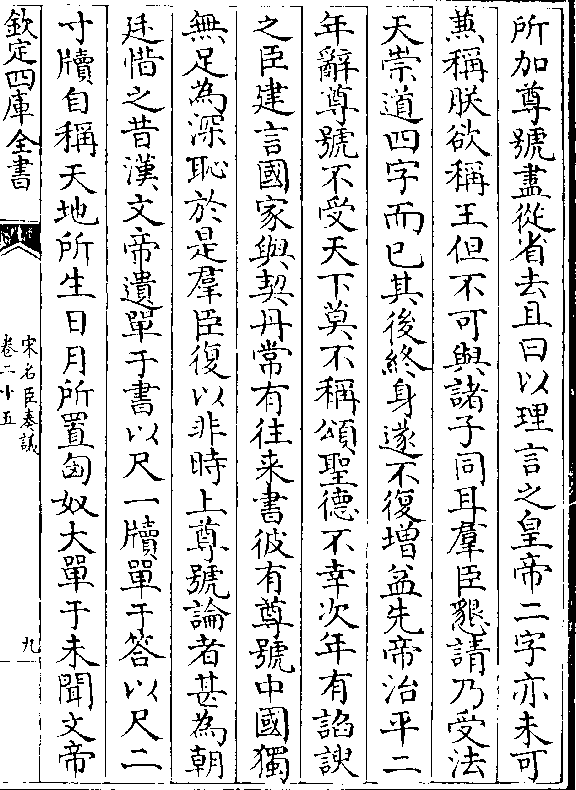 所加尊號盡從省去且曰以理言之皇帝二字亦未可
兼稱朕欲稱王但不可與諸子同耳羣臣懇請乃受法
天崇道四字而已其後終身遂不復增益先帝治平二
年辭尊號不受天下莫不稱頌聖德不幸次年有謟諛
之臣建言國家與契丹常有往来書彼有尊號中國獨
無足為深恥於是羣臣復以非時上尊號論者甚為朝
廷惜之昔漢文帝遺單于書以尺一牘單于答以尺二
寸牘自稱天地所生日月所置匈奴大單于未聞文帝
欽定四庫全書
宋名臣奏議
卷二十五
九